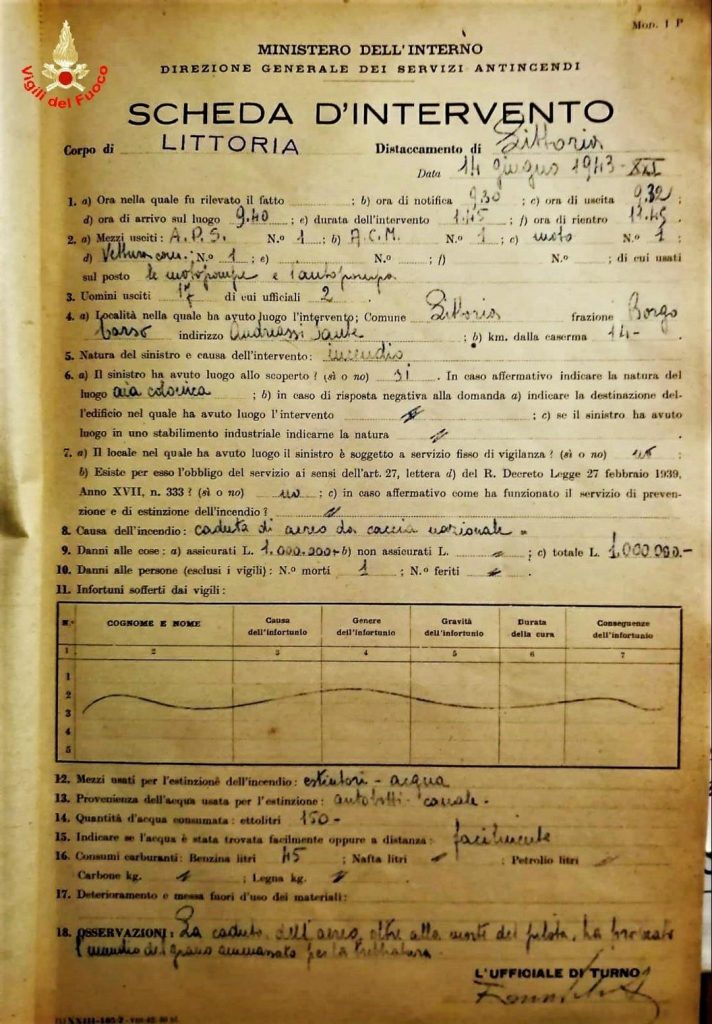 Mod. 1 P
Vigili del Fuoco
MINISTERO DELL'INTERNO
DIREZIONE GENERALE DEI SERVIZI ANTINCENDI
SCHEDA D'INTERVENTO
Corpo di LITTORIA Distaccamento di Littoria
Data 14 giugno 1943-XXI
1. a) Ora nella quale fu rilevato il fatto ; b) ora di notifica 9,30 ; c) ora di uscita 9.32 ;
d) ora di arrivo sul luogo 9.40 ; e) durata dell'intervento ; f) ora di rientro ;
2. a) Mezzi usciti: A.P.S. N.o 1 ; b) A.C.M. N.o 1 ; c) moto N.o 1 ;
d) Vettura com. ; N.o 1 ; e) N.o ; f) N.o ; di cui usati
sul posto le motopompe e l'autopompa
3. Uomini usciti 17 di cui ufficiali 2
4. a) Località nella quale ha avuto luogo l'intervento; Comune Littoria frazione Borgo
Carso indirizzo Andreassi Sante ; b) km. dalla caserma 14-
5. Natura del sinistro e causa dell'intervento: incendio
6. a) Il sinistro ha avuto luogo allo scoperto? (sì o no) si . In caso affermativo indicare la natura del
luogo aia colonica ; b) in caso di risposta negativa alla domanda a) indicare la destinazione del-
l'edificio nel quale ha avuto luogo l'intervento ; c) se il sinistro ha avuto
luogo in uno stabilimento industriale indicarne la natura .
7. a) Il locale nel quale ha avuto luogo il sinistro è soggetto a servizio fisso di vigilanza? (sì o no) no
b) Esiste per esso l'obbligo del servizio ai sensi dell'art. 27, lettera d) del R. Decreto Legge 27 febbraio 1939,
Anno XVII, n. 333? (sì o no) no ; c) in caso affermativo come ha funzionato il servizio di preven-
zione e di estinzione dell'incendio?
8. Causa dell'incendio: caduta di aereo da caccia nazionale -
9. Danni alle cose: a) assicurati L. 1.000.000- b) non assicurati L. ; c) totale L. 1.000.000.-
10. Danni alle persone (esclusi i vigili): N.o morti 1 ; N.o feriti .
11. Infortuni sofferti dai vigili:
N.o COGNOME E NOME Causa dell'infortunio Genere dell'infortunio Gravità dell'infortunio Durata della cura Conseguenze dell'infortunio
1 2 3 4 5 6 7
1
2
3
4
5
12. Mezzi usati per l'estinzione dell'incendio: estintori - acqua
13. Provenienza dell'acqua usata per l'estinzione: autobotti - canale -
14. Quantità d'acqua consumata: ettolitri 150-
15. Indicare se l'acqua è stata trovata facilmente oppure a distanza: facilmente
16. Consumi carburanti: Benzina litri 45 ; Nafta litri ; Petrolio litri
Carbone kg. ; Legna kg. .
17. Deterioramento e messa fuori d'uso dei materiali:
18. OSSERVAZIONI: La caduta dell'aereo, oltre alla morte del pilota, ha provocato
l'incendio del grano ammassato per la trebbiatura.
L'UFFICIALE DI TURNO